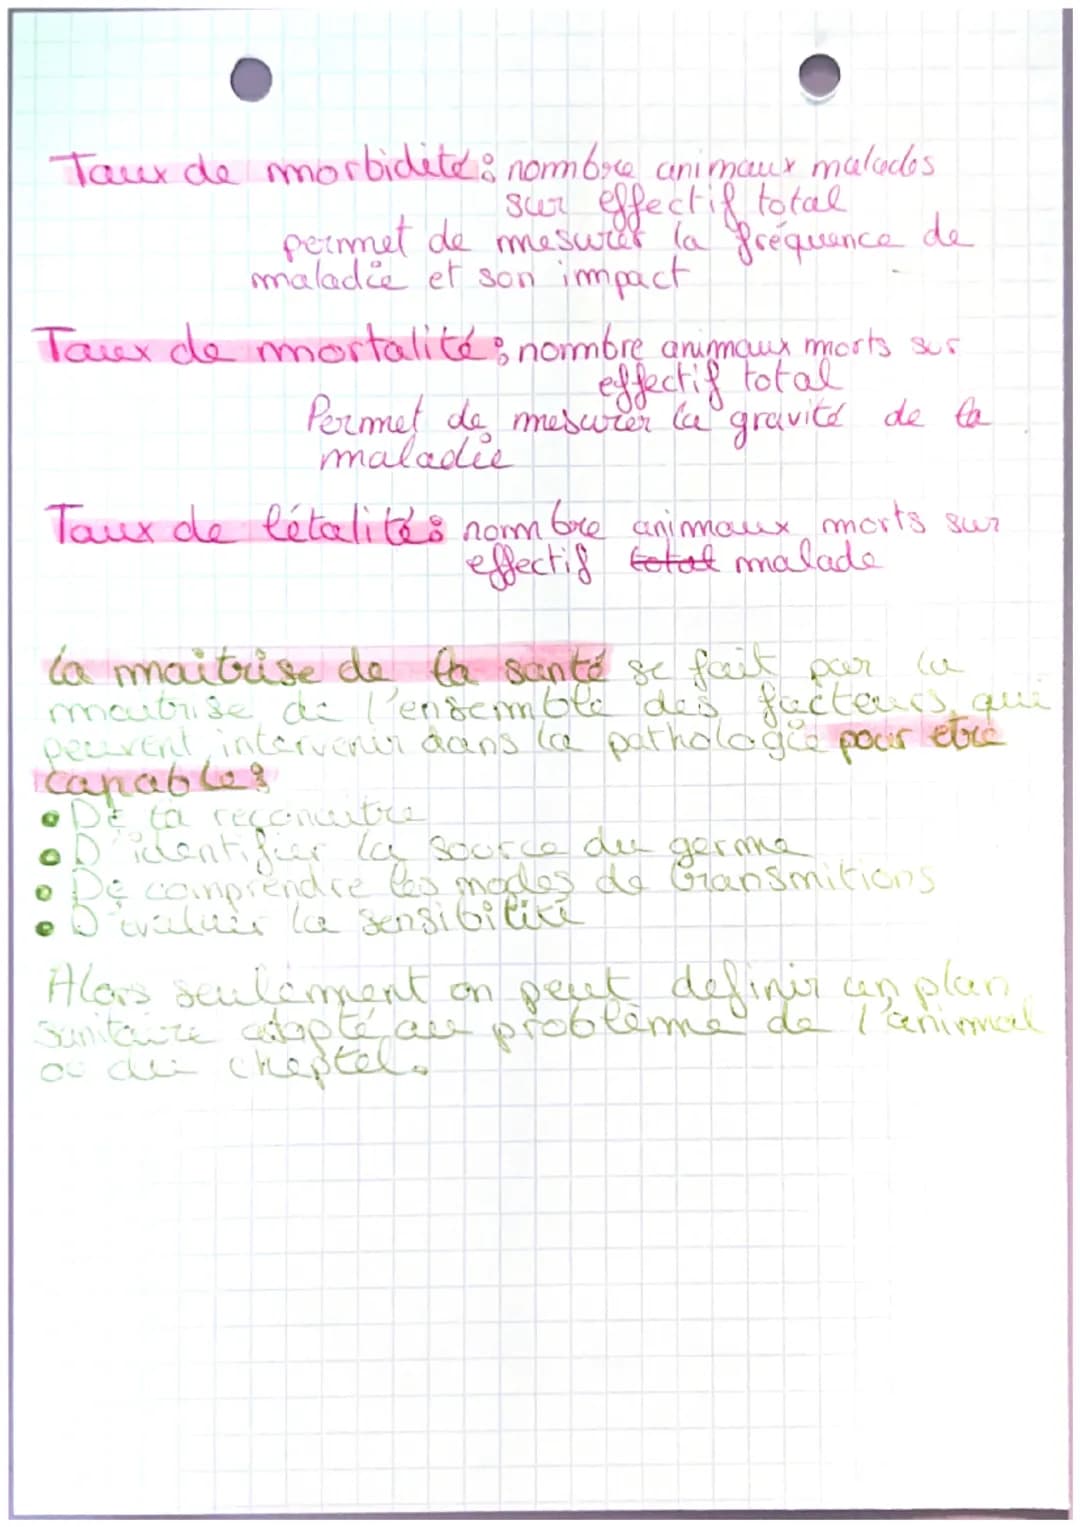 Taux de morbidité : nombre animaux malades
sur effectif total
permet de mesurer la fréquence de
maladie et son impact
Taux de mortalité : nombre animaux morts sur
effectif total
Permet de mesurer la gravité de la
maladie
Taux de létalité : nombre animaux morts sur
effectif total malade
La maitrise de la santé se fait par la
maitrise de l'ensemble des facteurs qui
peuvent intervenir dans la pathologie pour etre
capable :
• De la reconaitre
• D'identifier la source du germe
• De comprendre les modes de transmitions
• D'évaluer la sensibilité
Alors seulement on peut definir un plan
sanitaire adapté au problème de l'animal
ou du cheptel.